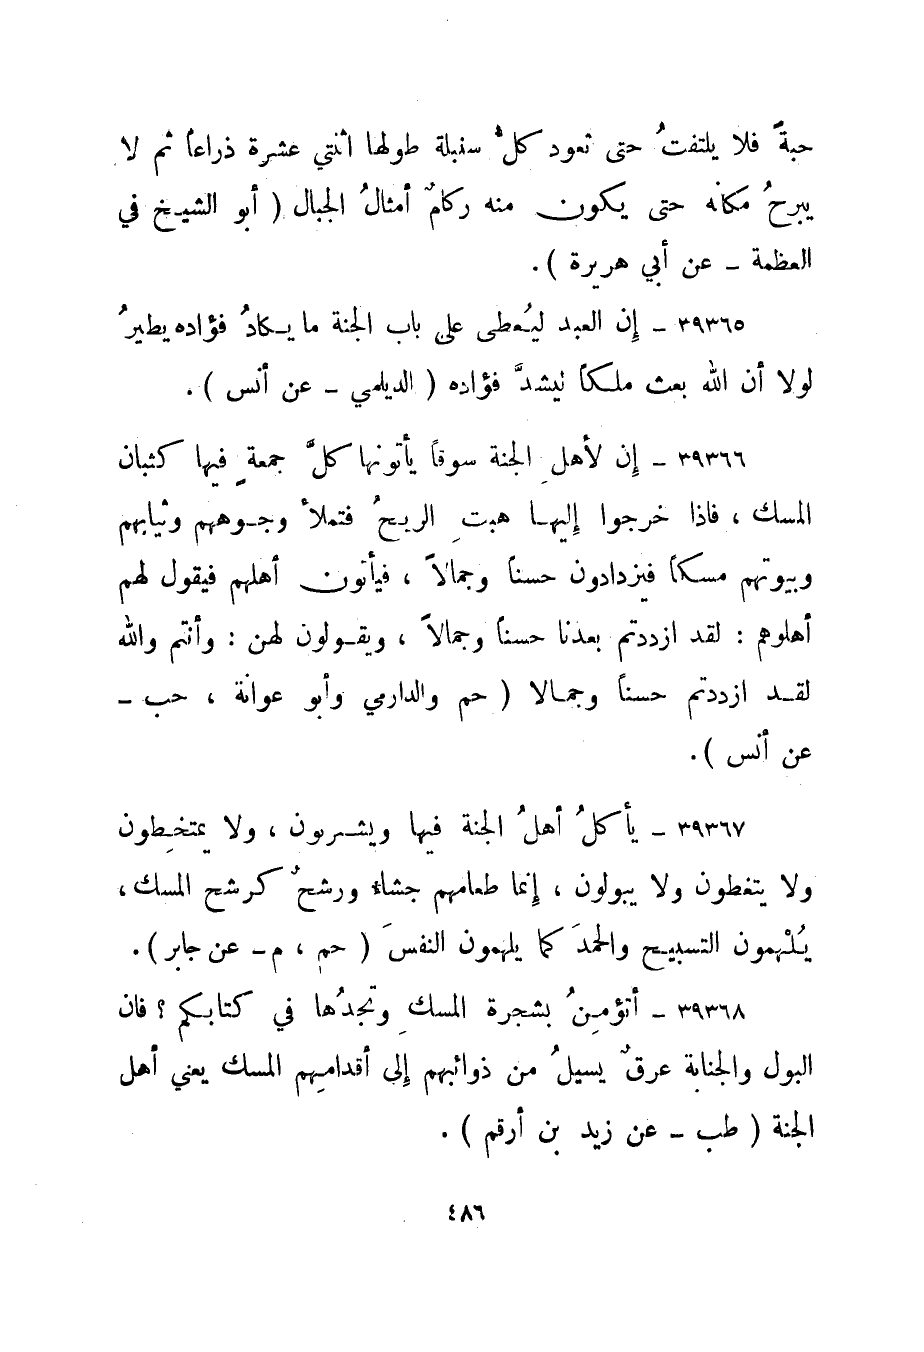 حبةً فلا يلتفتُ حتى تعود كلُّ سنبلة طولها اثنتي عشرة ذراعاً ثم لا
يبرحُ مكانه حتى يكون منه ركامٌ أمثالُ الجبال ( أبو الشيخ في
العظمة - عن أبي هريرة ) .
٣٩٣٦٥ - إن العبد ليُعطى على باب الجنة ما يكادُ فؤاده يطيرُ
لولا أن الله بعث ملكاً ليشدَّ فؤاده ( الديلمي - عن أنس ) .
٣٩٣٦٦ - إن لأهلِ الجنة سوقاً يأتونها كلَّ جمعةٍ فيها كثبان
المسك ، فاذا خرجوا إليها هبتِ الريحُ فتملأ وجوههم وثيابهم
وبيوتهم مسكاً فيزدادون حسناً وجمالاً ، فيأتون أهلهم فيقول لهم
أهلوهم : لقد ازددتم بعدنا حسناً وجمالاً ، ويقولون لهن : وأنتم والله
لقد ازددتم حسناً وجمالا ( حم والدارمي وأبو عوانة ، حب -
عن أنس ) .
٣٩٣٦٧ - يأكلُ أهلُ الجنة فيها ويشربون ، ولا يمتخطون
ولا يتغطون ولا يبولون ، إنما طعامهم جشاء ورشحٌ كرشح المسك ،
يُلْهمون التسبيح والحمدَ كما يلهمون النفسَ ( حم ، م - عن جابر ) .
٣٩٣٦٨ - أتؤمنُ بشجرة المسكِ وتجدُها في كتابكم ؟ فان
البول والجنابة عرقٌ يسيلُ من ذوائبهم إلى أقدامهم المسك يعني أهل
الجنة ( طب - عن زيد بن أرقم ) .
٤٨٦